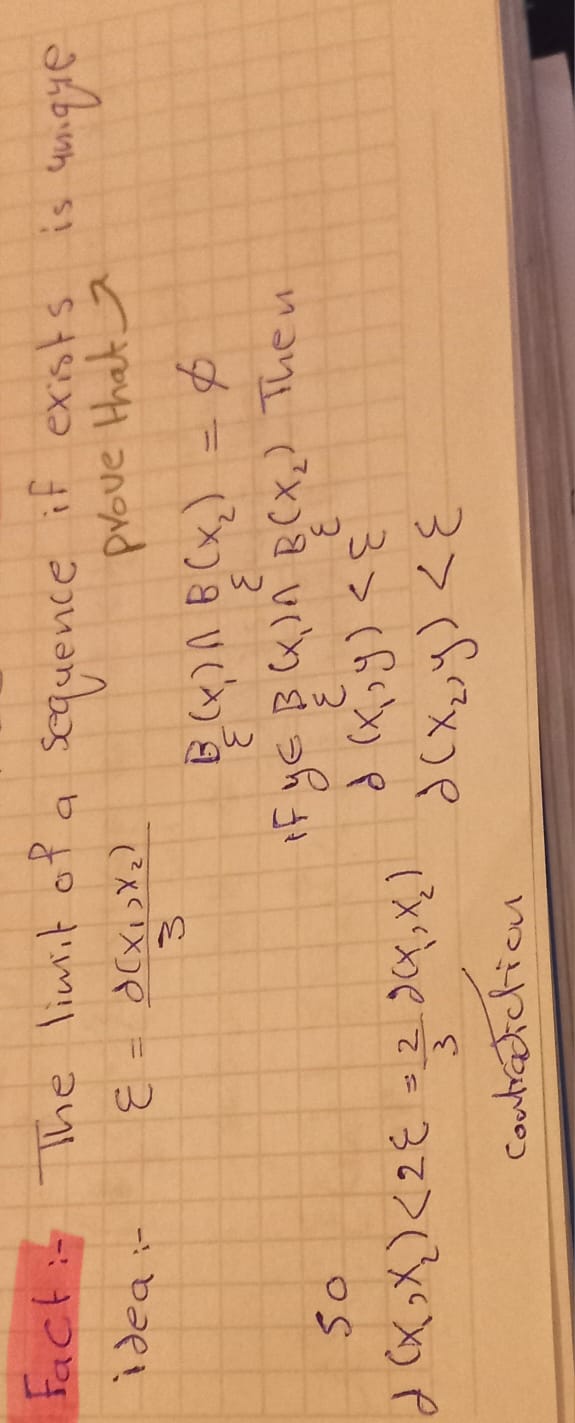 Fact :- The limit of a sequence if exists is unique
prove that ↗
idea :- ε = d(x₁,x₂)/3
B_ε(x₁) ∩ B_ε(x₂) = ∅
if y ∈ B_ε(x₁) ∩ B_ε(x₂) Then
d(x₁,y) < ε
d(x₂,y) < ε
so
d(x₁,x₂) < 2ε = 2/3 d(x₁,x₂)
contradiction